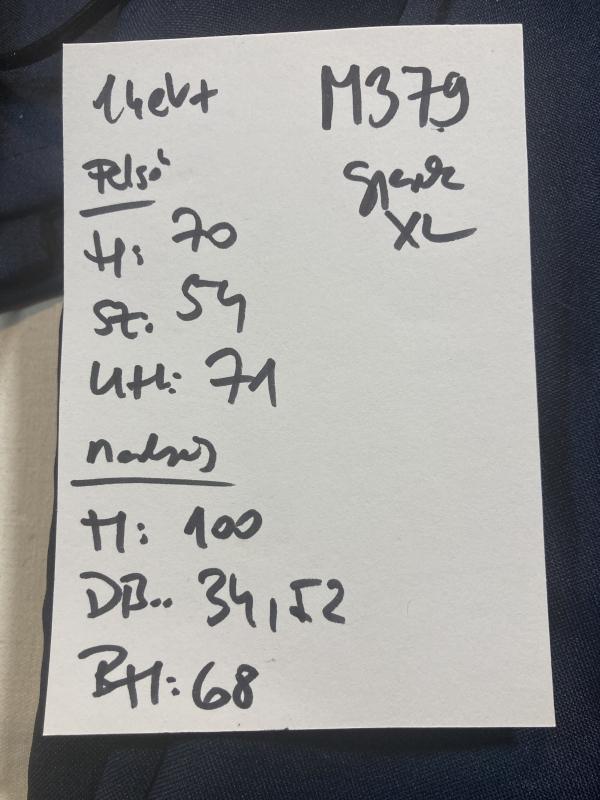 14evt
M379
Felső
XL
H: 70
SZ: 54
UH: 71
Nadrág
H: 100
DB.. 34,52
BH: 68